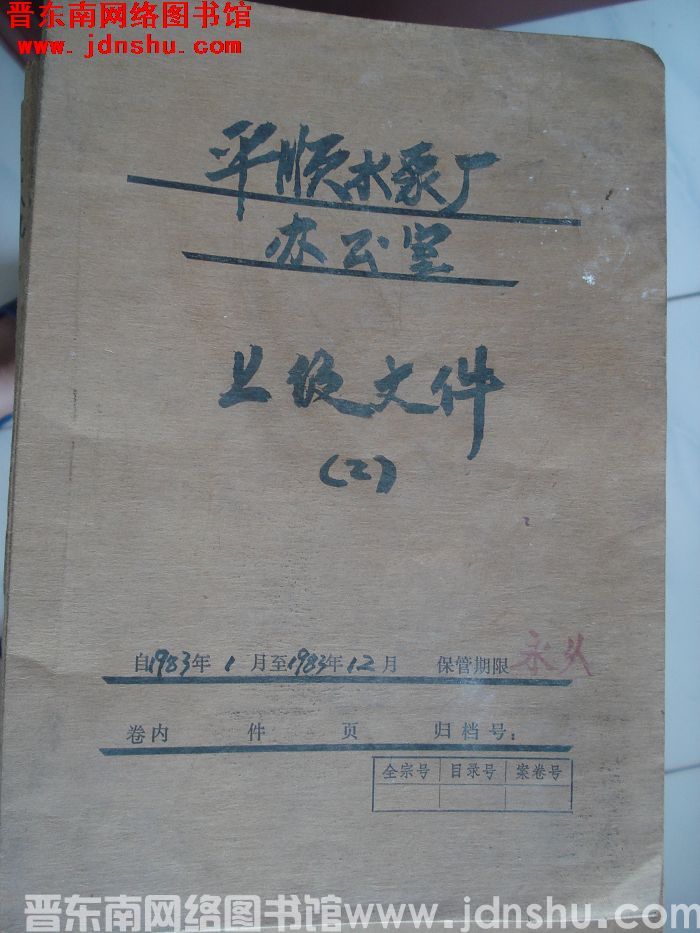 晋东南网络图书馆
www.jdnshu.com
平顺水泵厂
办公室
上级文件
(2)
自1983年1月至1983年12月 保管期限 永久
卷内 件 页 归档号:
全宗号 目录号 案卷号
晋东南网络图书馆www.jdnshu.com